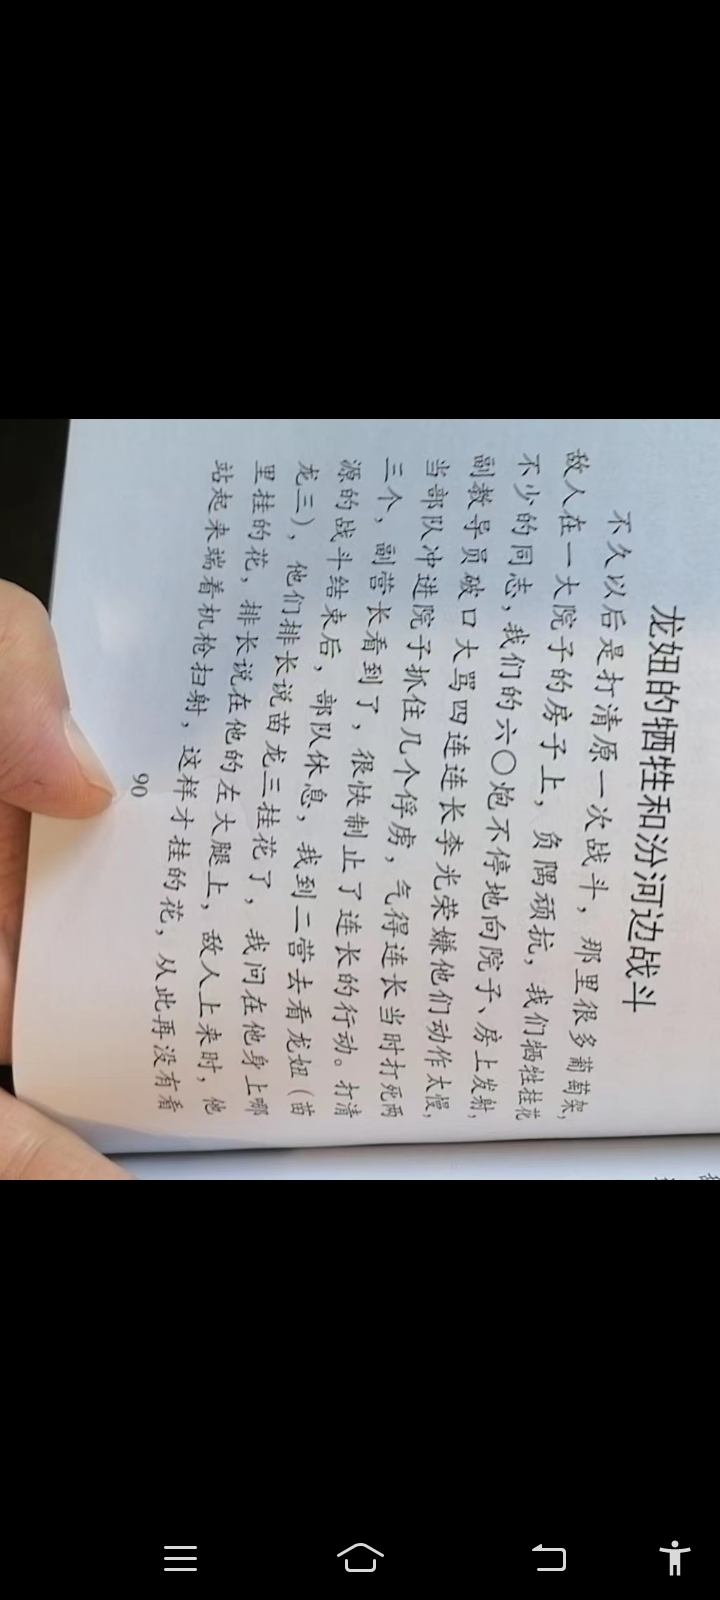 龙妞的牺牲和汾河边战斗
不久以后是打清原一次战斗，那里很多葡萄架，
敌人在一大院子的房子上，负隅顽抗，我们牺牲挂花
不少的同志，我们的六〇炮不停地向院子、房上发射，
副教导员破口大骂四连连长李光荣嫌他们动作太慢，
当部队冲进院子抓住几个俘虏，气得连长当时打死两
三个，副营长看到了，很快制止了连长的行动。打清
源的战斗结束后，部队休息，我到二营去看龙妞（苗
龙三），他们排长说苗龙三挂花了，我问在他身上哪
里挂的花，排长说在他的左大腿上，敌人上来时，他
站起来端着机枪扫射，这样才挂的花，从此再没有看
90